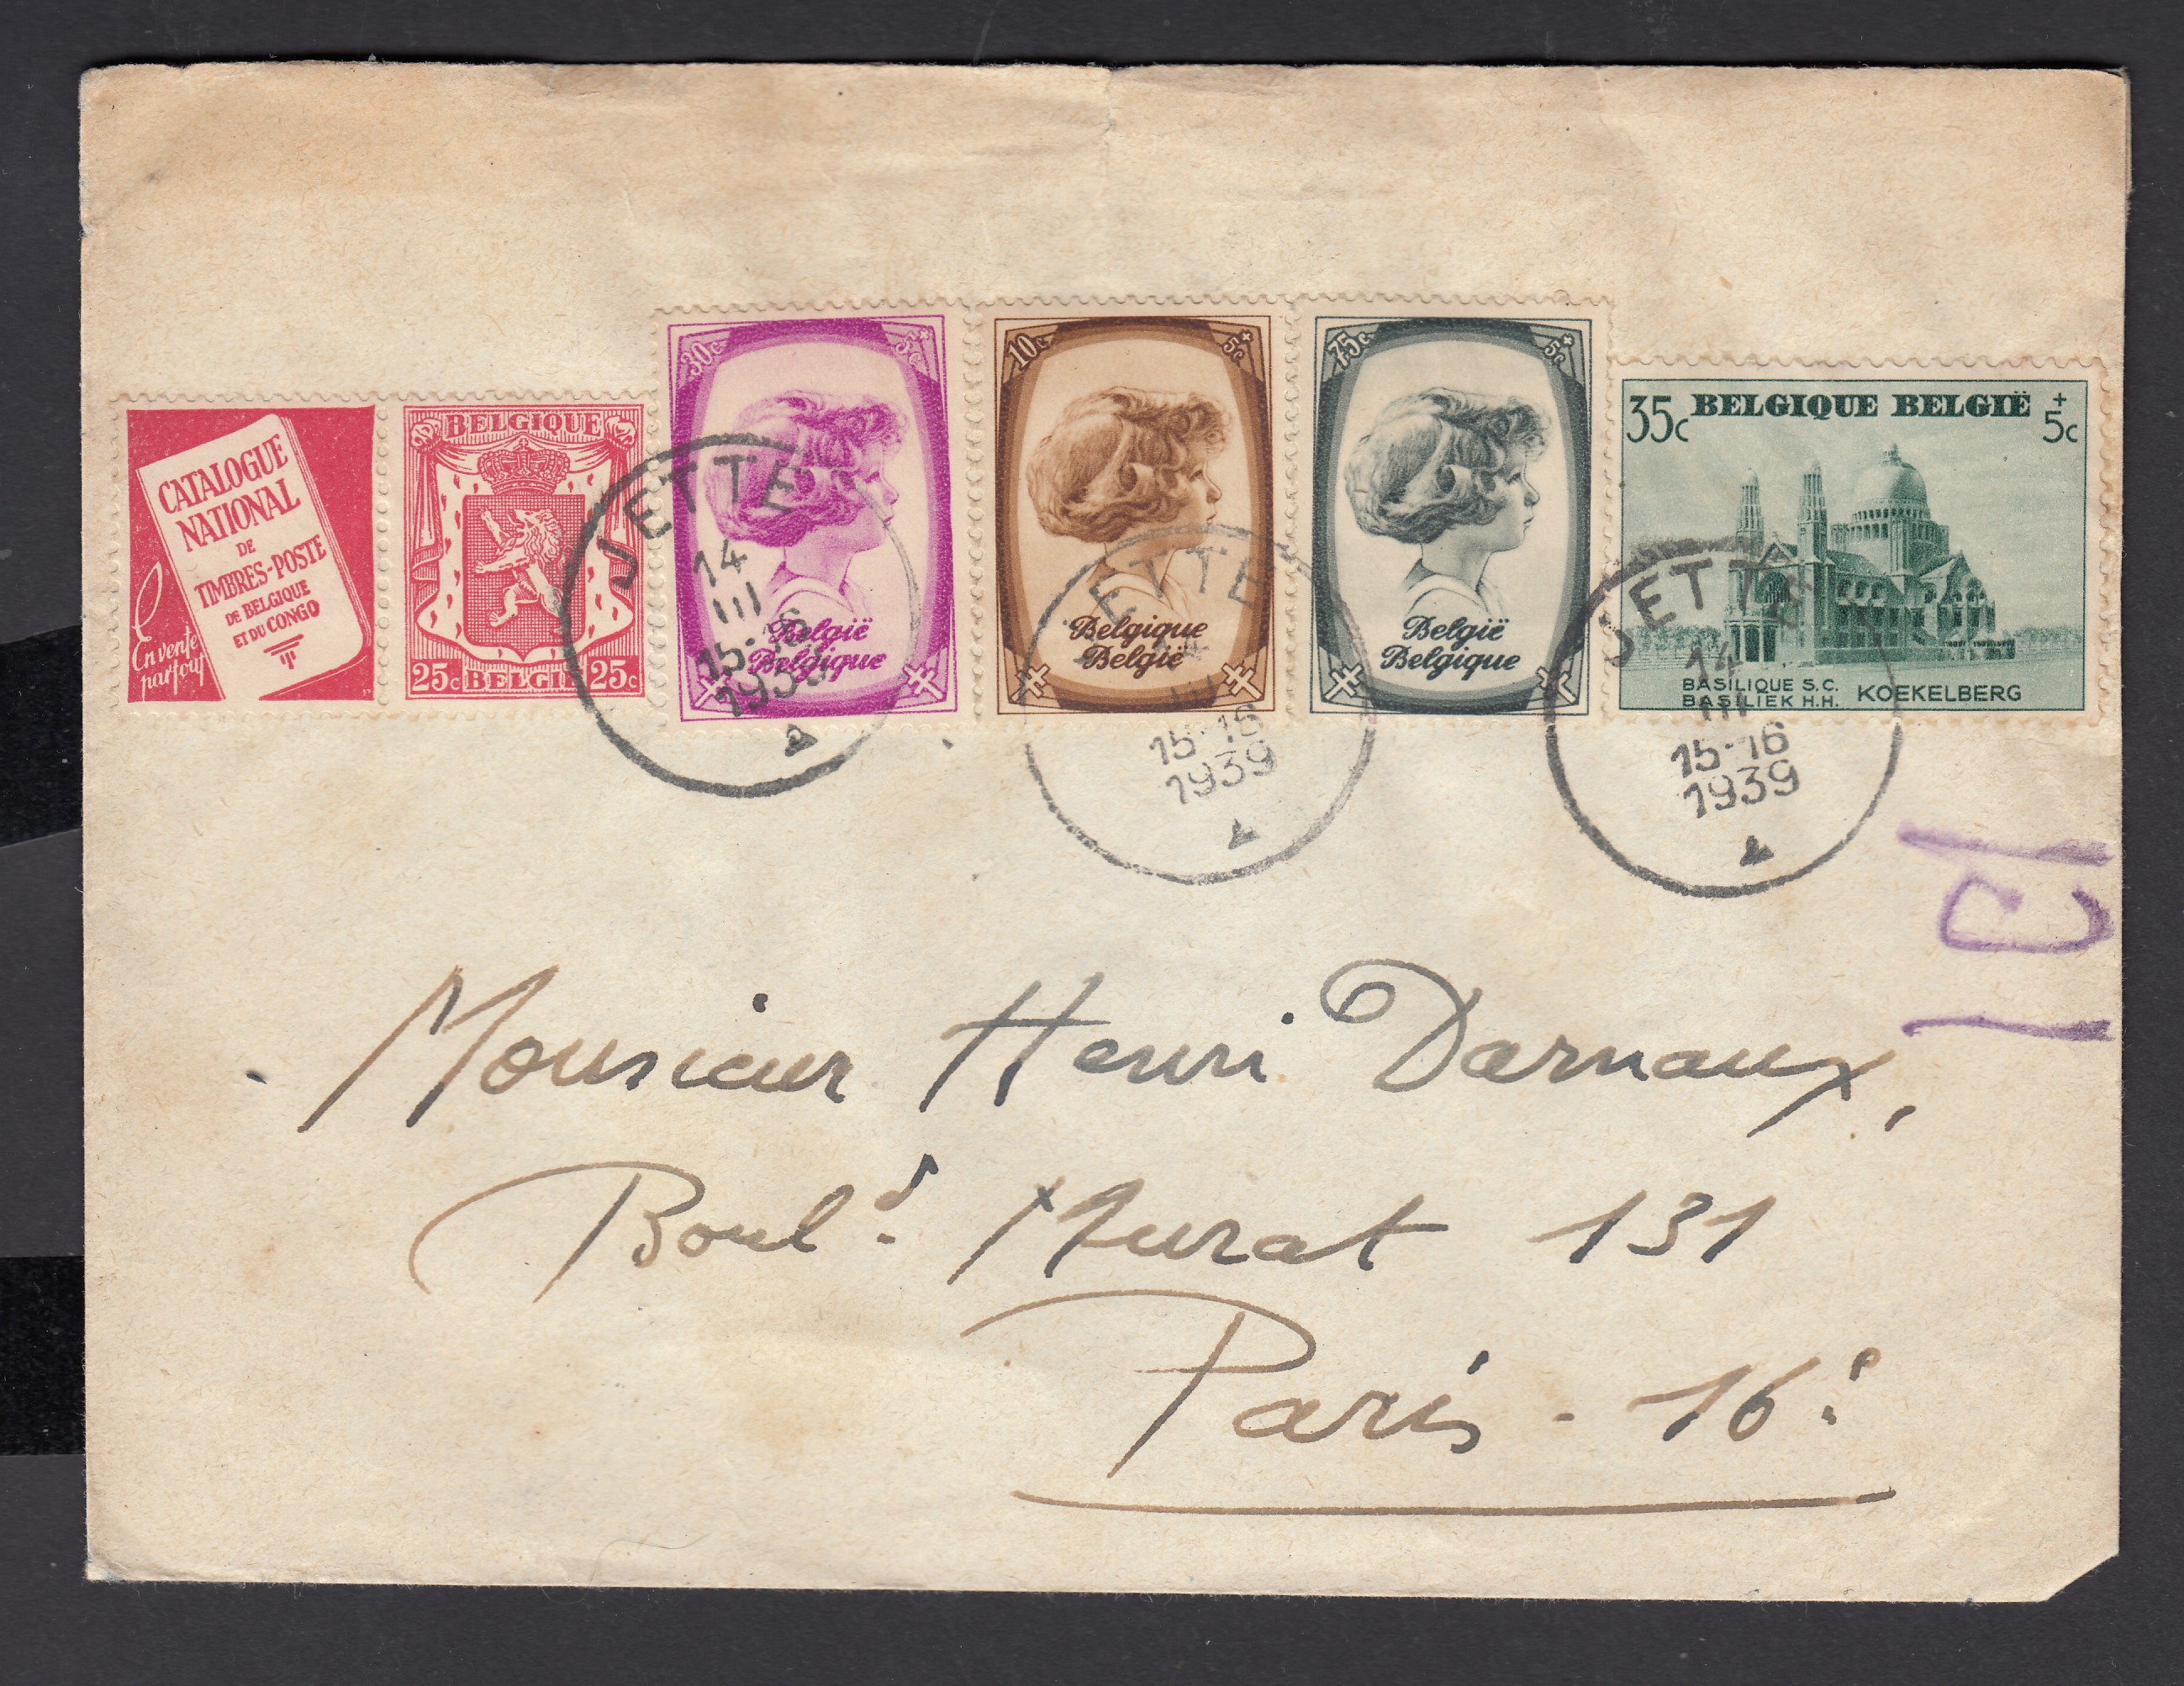 CATALOGUE
NATIONAL
DE
TIMBRES-POSTE
DE BELGIQUE
ET DU CONGO
En vente
partout
BELGIQUE
25c BELGIE 25c
30c 5c+
België
Belgique
10c 5c+
Belgique
België
75c 5c+
België
Belgique
35c BELGIQUE BELGIË +5c
BASILIQUE S.C.
BASILIEK H.H. KOEKELBERG
JETTE
14
III
15-16
1939
ETTE
III
15-16
1939
JETTE
14
III
15-16
1939
Monsieur Henri Darnaux,
Boul.d Murat 131
Paris - 16e